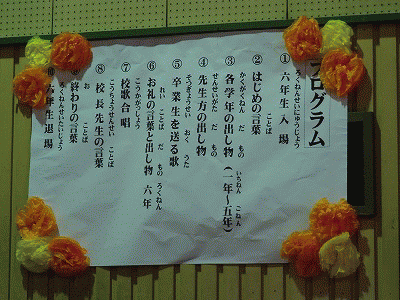 プログラム
①六年生入場
②はじめの言葉
③各学年の出し物(一年~五年)
④先生方の出し物
⑤卒業生を送る歌
⑥お礼の言葉と出し物 六年
⑦校歌合唱
⑧校長先生の言葉
⑨終わりの言葉
⑩六年生退場